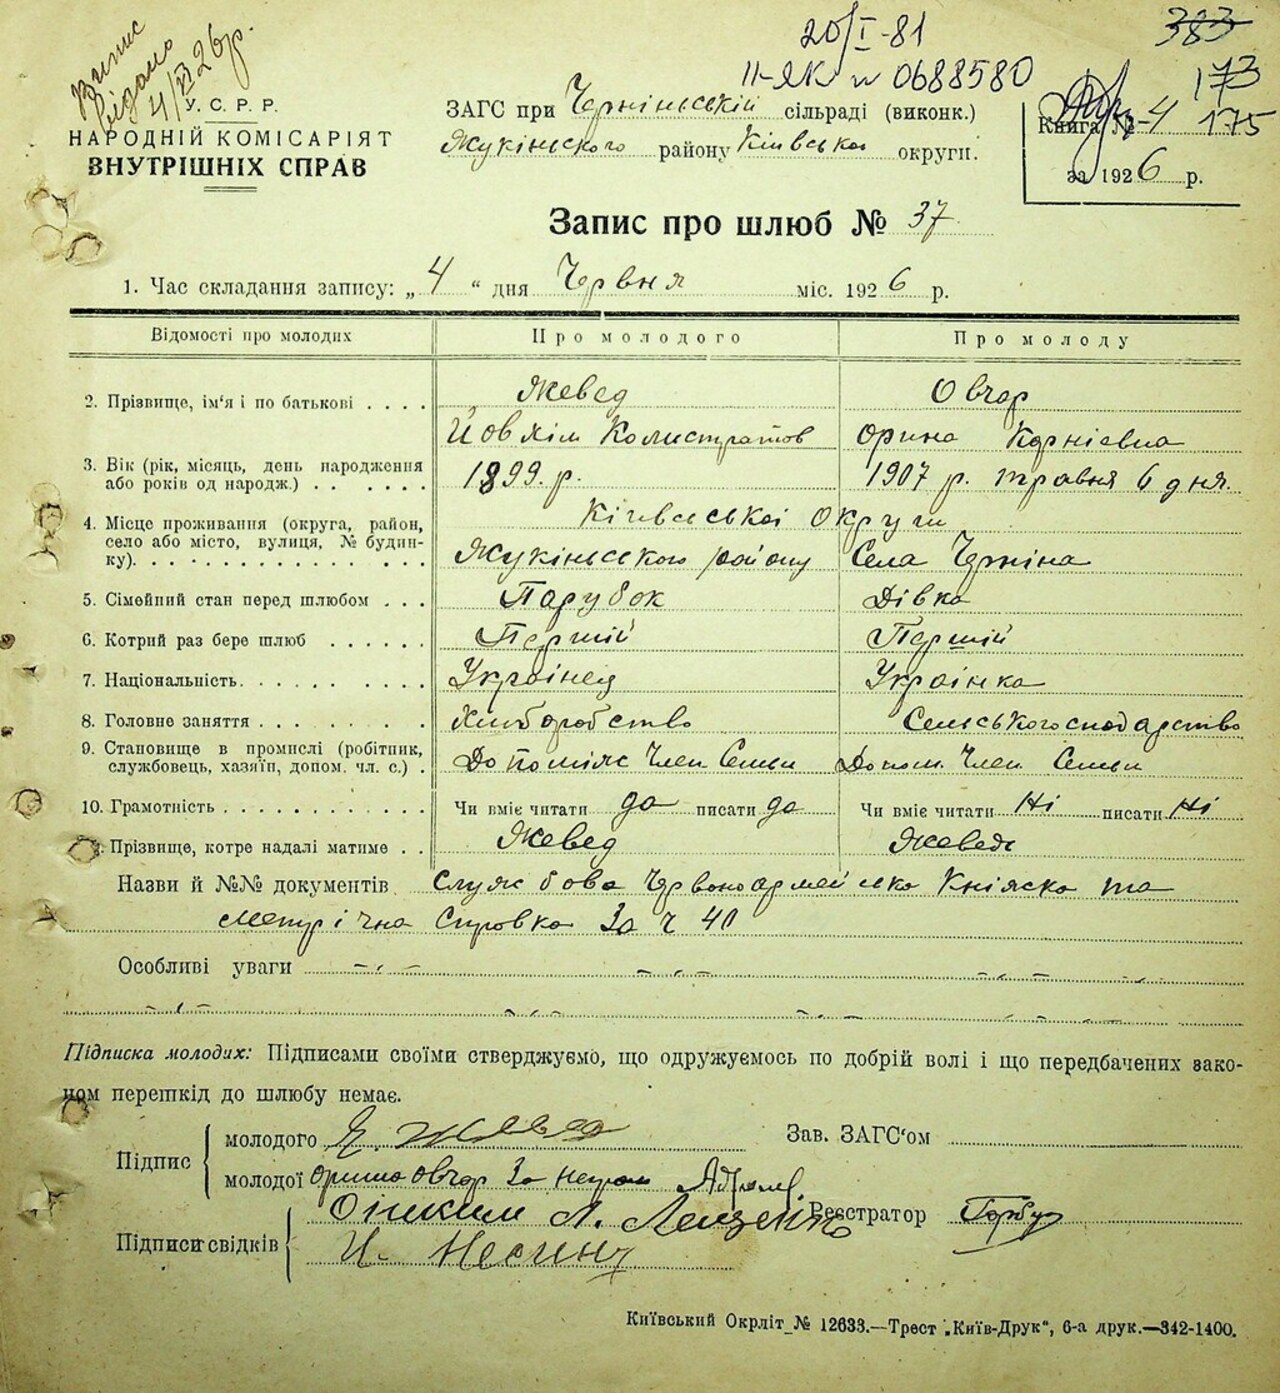 Випис видано 4/VI 26 р.
20/I-81
II-ЯК № 0688580
383
173
175
У. С. Р. Р.
НАРОДНІЙ КОМІСАРІЯТ
ВНУТРІШНІХ СПРАВ
ЗАГС при Чернінській сільраді (виконк.)
Жукінського району Київської округи.
Книга № 4
за 1926 р.
Запис про шлюб № 37
1. Час складання запису: „4“ дня Червня міс. 1926 р.
Відомості про молодих Про молодого Про молоду
2. Прізвище, ім'я і по батькові . . . . Жевед Овчар
Йовхім Калистратов Орина Корніевна
3. Вік (рік, місяць, день народження або років од народж.) . . . . . . 1899 р. 1907 р. травня 6 дня.
4. Місце проживання (округа, район, село або місто, вулиця, № будинку). Київської Округи
Жукінського району Села Чернина
5. Сімейний стан перед шлюбом . . . Парубок Дівка
6. Котрий раз бере шлюб . . . . . . Перший Перший
7. Національність. . . . . . . . . . Украінец Украінка
8. Головне заняття . . . . . . . . Хліборобство Сельського сподарство
9. Становище в промислі (робітник, службовець, хазяїн, допом. чл. с.) . Допоміжс Член Семьи Допом. Член Семьи
10. Грамотність . . . . . . . . . . . Чи вміє читати да писати да Чи вміє читати Ні писати Ні
Прізвище, котре надалі матиме . . Жевед Жевед
Назви й №№ документів Службова Червоноармейська Книжка та
Метрічна Справка За ч 40
Особливі уваги
Підписка молодих: Підписами своїми стверджуємо, що одружуємось по добрій волі і що передбачених зако-
ном перешкід до шлюбу немає.
Підпис молодого Я. Жевед Зав. ЗАГС'ом
молодої Орина Овчар За неграм
Підписи свідків Л. Лещенко Реєстратор
И.
Київський Окрліт № 12633.—Трест „Київ-Друк“, 6-а друк.—342-1400.